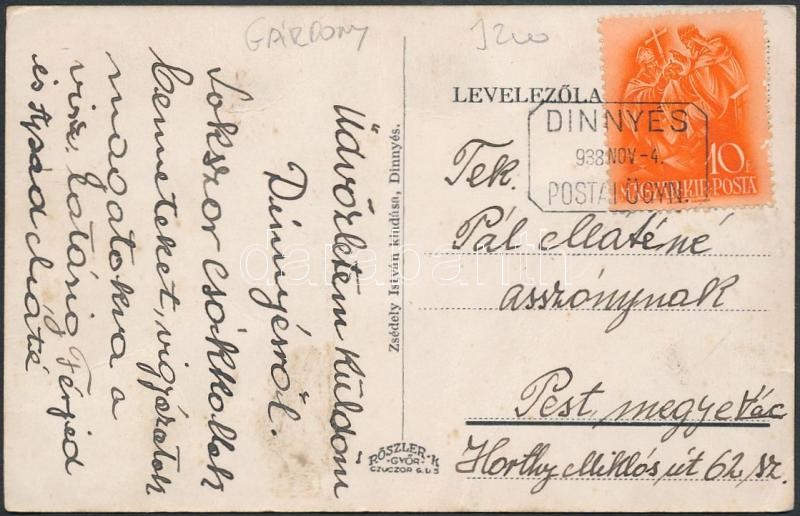 GÁRDONY
LEVELEZŐLA
DINNYÉS
938 NOV -4.
POSTAI ÜGYN.
10 f
MAGYAR KIR. POSTA
Üdvözletem küldöm
Dinnyésről.
Sokszor csókkollak
benneteket, vigyázatok
magatokra a
visz. látásig Férjed
és Apád Máté
Zsédely István kiadása, Dinnyés.
RÖSZLER-K
-GYŐR-
CZUCZOR G. U 5
Tek.
Pál Máténé
asszonynak
Pest, megye Vác
Horthy Miklós út 62, sz.
darabanth